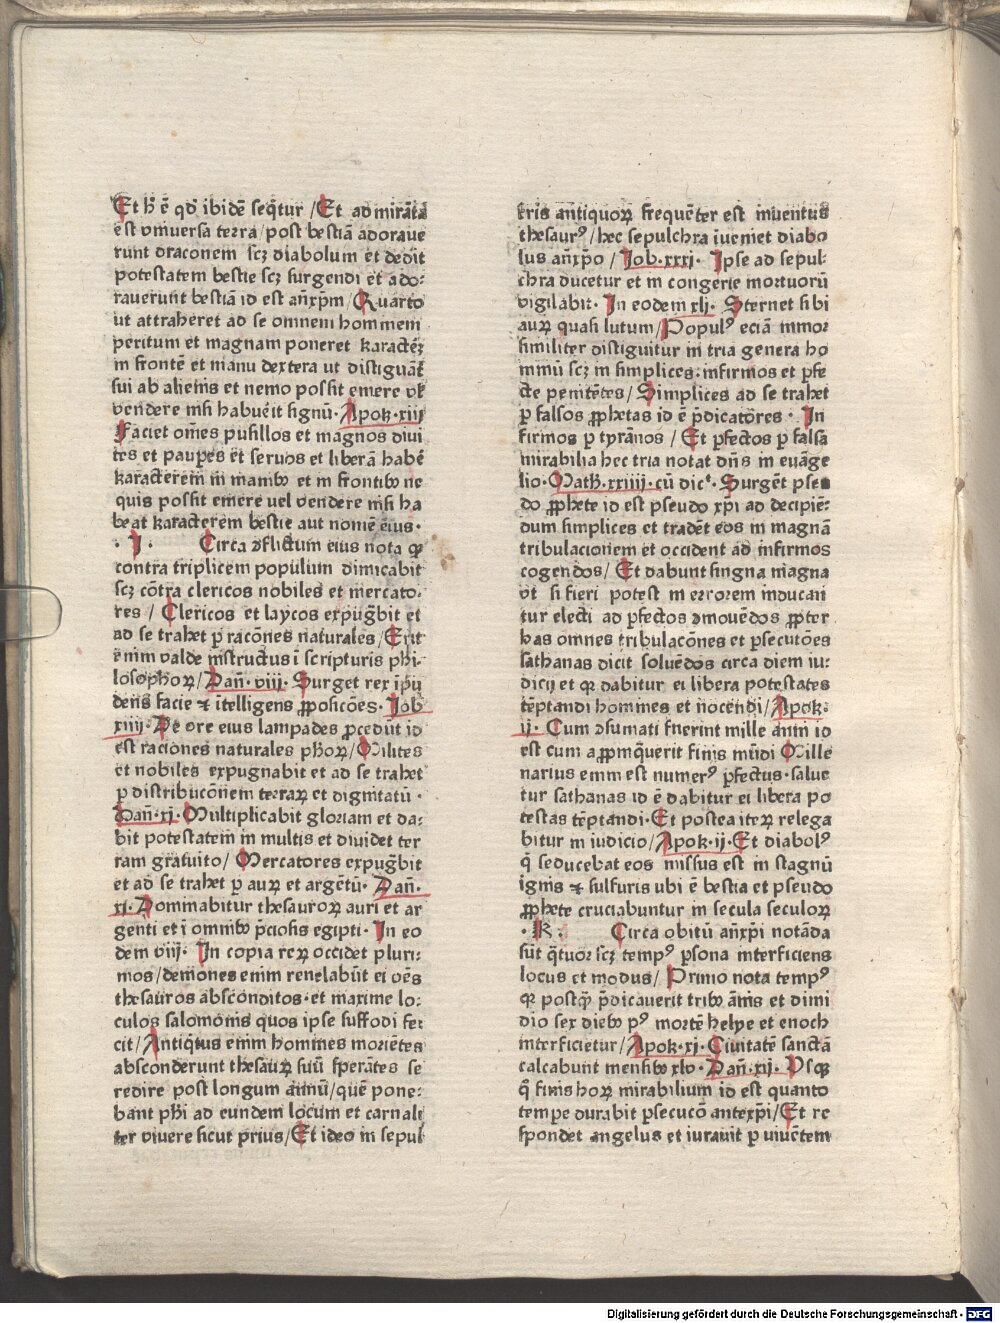 Et h̄ ē qđ ibidē seq̄tur /Et admirāta
ēst vniuersa terra/post bestiā adoraue
runt draconem scꝫ diabolum et dedit
potestatem bestie scꝫ surgendi et ado⸗
rauerunt bestiā id est an̄xp̄m/Quarto
ut attraheret ad se omnem hominem
peritum et magnam poneret karactēꝝ
in frontē et manu dextera ut distiguāt
sui ab alienis et nemo possit emere vł
vendere nisi habuēit signū· Apoꝃ·xiij
Faciet om̄es pusillos et magnos diui
tes et paup̄es et seruos et liberā habē
karacterem in manibꝰ et in frontibꝰ ne
quis possit emere uel vendere nisi ha
beat karacterem bestie aut nomē eius·
· J · Circa ꝯflictum eius nota ꝙ
contra triplicem populum dimicabit
scꝫ cōtra clericos nobiles et mercato⸗
res / Clericos et laycos expug̃bit et
ad se trahet ꝑ racōnes naturales/Erit
enim valde instructus ī scripturis phi⸗
losophoꝝ/Dan̄·viij· Surget rex īpu
dens facie ⁊ ītelligens ꝓposicōes· Job
xiiij· De ore eius lampades ꝓcedūt id
est raciones naturales ph̄oꝝ/Milites
et nobiles expugnabit et ad se trahet
ꝑ distribucōnem terraꝝ et dignitatū ·
Dan̄·xj· Multiplicabit gloriam et da⸗
bit potestatem in multis et diuidet ter
ram gratuito/ Mercatores expug̃bit
et ad se trahet ꝑ auꝝ et argētū· Dan̄·
xj· Dominabitur thesauroꝝ auri et ar
genti et ī omnibꝰ p̄ciosis egipti· In eo
dem viij· In copia reꝝ occidet pluri⸗
mos/demones enim reuelabūt ei oēs
thesauros absconditos·et maxime lo⸗
culos salomonis quos ipse suffodi fe
cit/Antiq̄tus enim homines moriētes
absconderunt thesauꝝ suū sperātes se
redire post longum annū/quē pone⸗
bant ph̄i ad eundem locum et carnali
ter viuere sicut prius/Et ideo in sepul
cris antiquoꝝ frequēter est inuentus
thesaurꝰ/hec sepulchra īueniet diabo
lus an̄xp̄o /Job·xxxj· Ipse ad sepul⸗
chra ducetur et in congerie mortuorū
vigilabit· In eodem xlj· Sternet sibi
auꝝ quasi lutum/Populꝰ eciā minor
similiter distiguitur in tria genera ho
minū scꝫ in simplices:infirmos et ꝑfe
cte penitētes/Simplices ad se trahet
ꝑ falsos ꝓphetas id ē p̄dicatores · In
firmos ꝑ tyrānos /Et ꝑfectos ꝑ falsa
mirabilia hec tria notat dn̄s in euāge
lio·Math̄·xxiiij·cū dic̄t·Surgēt pseu
do ꝓphete id est pseudo xp̄i ad decipiē⸗
dum simplices et tradēt eos in magnā
tribulacionem et occident ad infirmos
cogendos/ Et dabunt singna magna
vt si fieri potest in errorem inducan
tur electi ad ꝑfectos ꝯmouēdos ꝓpter
has omnes tribulacōnes et ꝑsecutōes
sathanas dicit soluēdos circa diem iu⸗
dicij et ꝙ dabitur ei libera potestates
tēptandi homines et nocendi/Apoꝃ·
ij· Cum ꝯsumati fuerint mille anni id
est cum aꝓpinq̄uerit finis mūdi Mille
narius enim est numerꝰ ꝑfectus·salue
tur sathanas id ē dabitur ei libera po
testas tēptandi·Et postea iteꝝ relega
bitur in iudicio/Apoꝃ·ij·Et diabolꝰ
q̄ seducebat eos missus est in stagnū
ignis ⁊ sulfuris ubi ē bestia et pseudo
ꝓphete cruciabuntur in secula seculoꝝ
· K · Circa obitū an̄xp̄i notāda
sūt q̄tuor scꝫ tempꝰ ꝑsona interficiens
locus et modus/ Primo nota tempꝰ
ꝙ postq̄ p̄dicauerit tribꝰ ānis et dimi
dio sex diebꝰ pꝰ mortē helye et enoch
interficietur/Apoꝃ·xj·Ciuitatē sanctā
calcabunt mensibꝰ xlv· Dan̄·xij· Vsqꝫ
q̄ finis hoꝝ mirabilium id est quanto
tempe durabit ꝑsecucō antexp̄i/Et re
spondet angelus et iurauit ꝑ viuētem
Digitalisierung gefördert durch die Deutsche Forschungsgemeinschaft · DFG